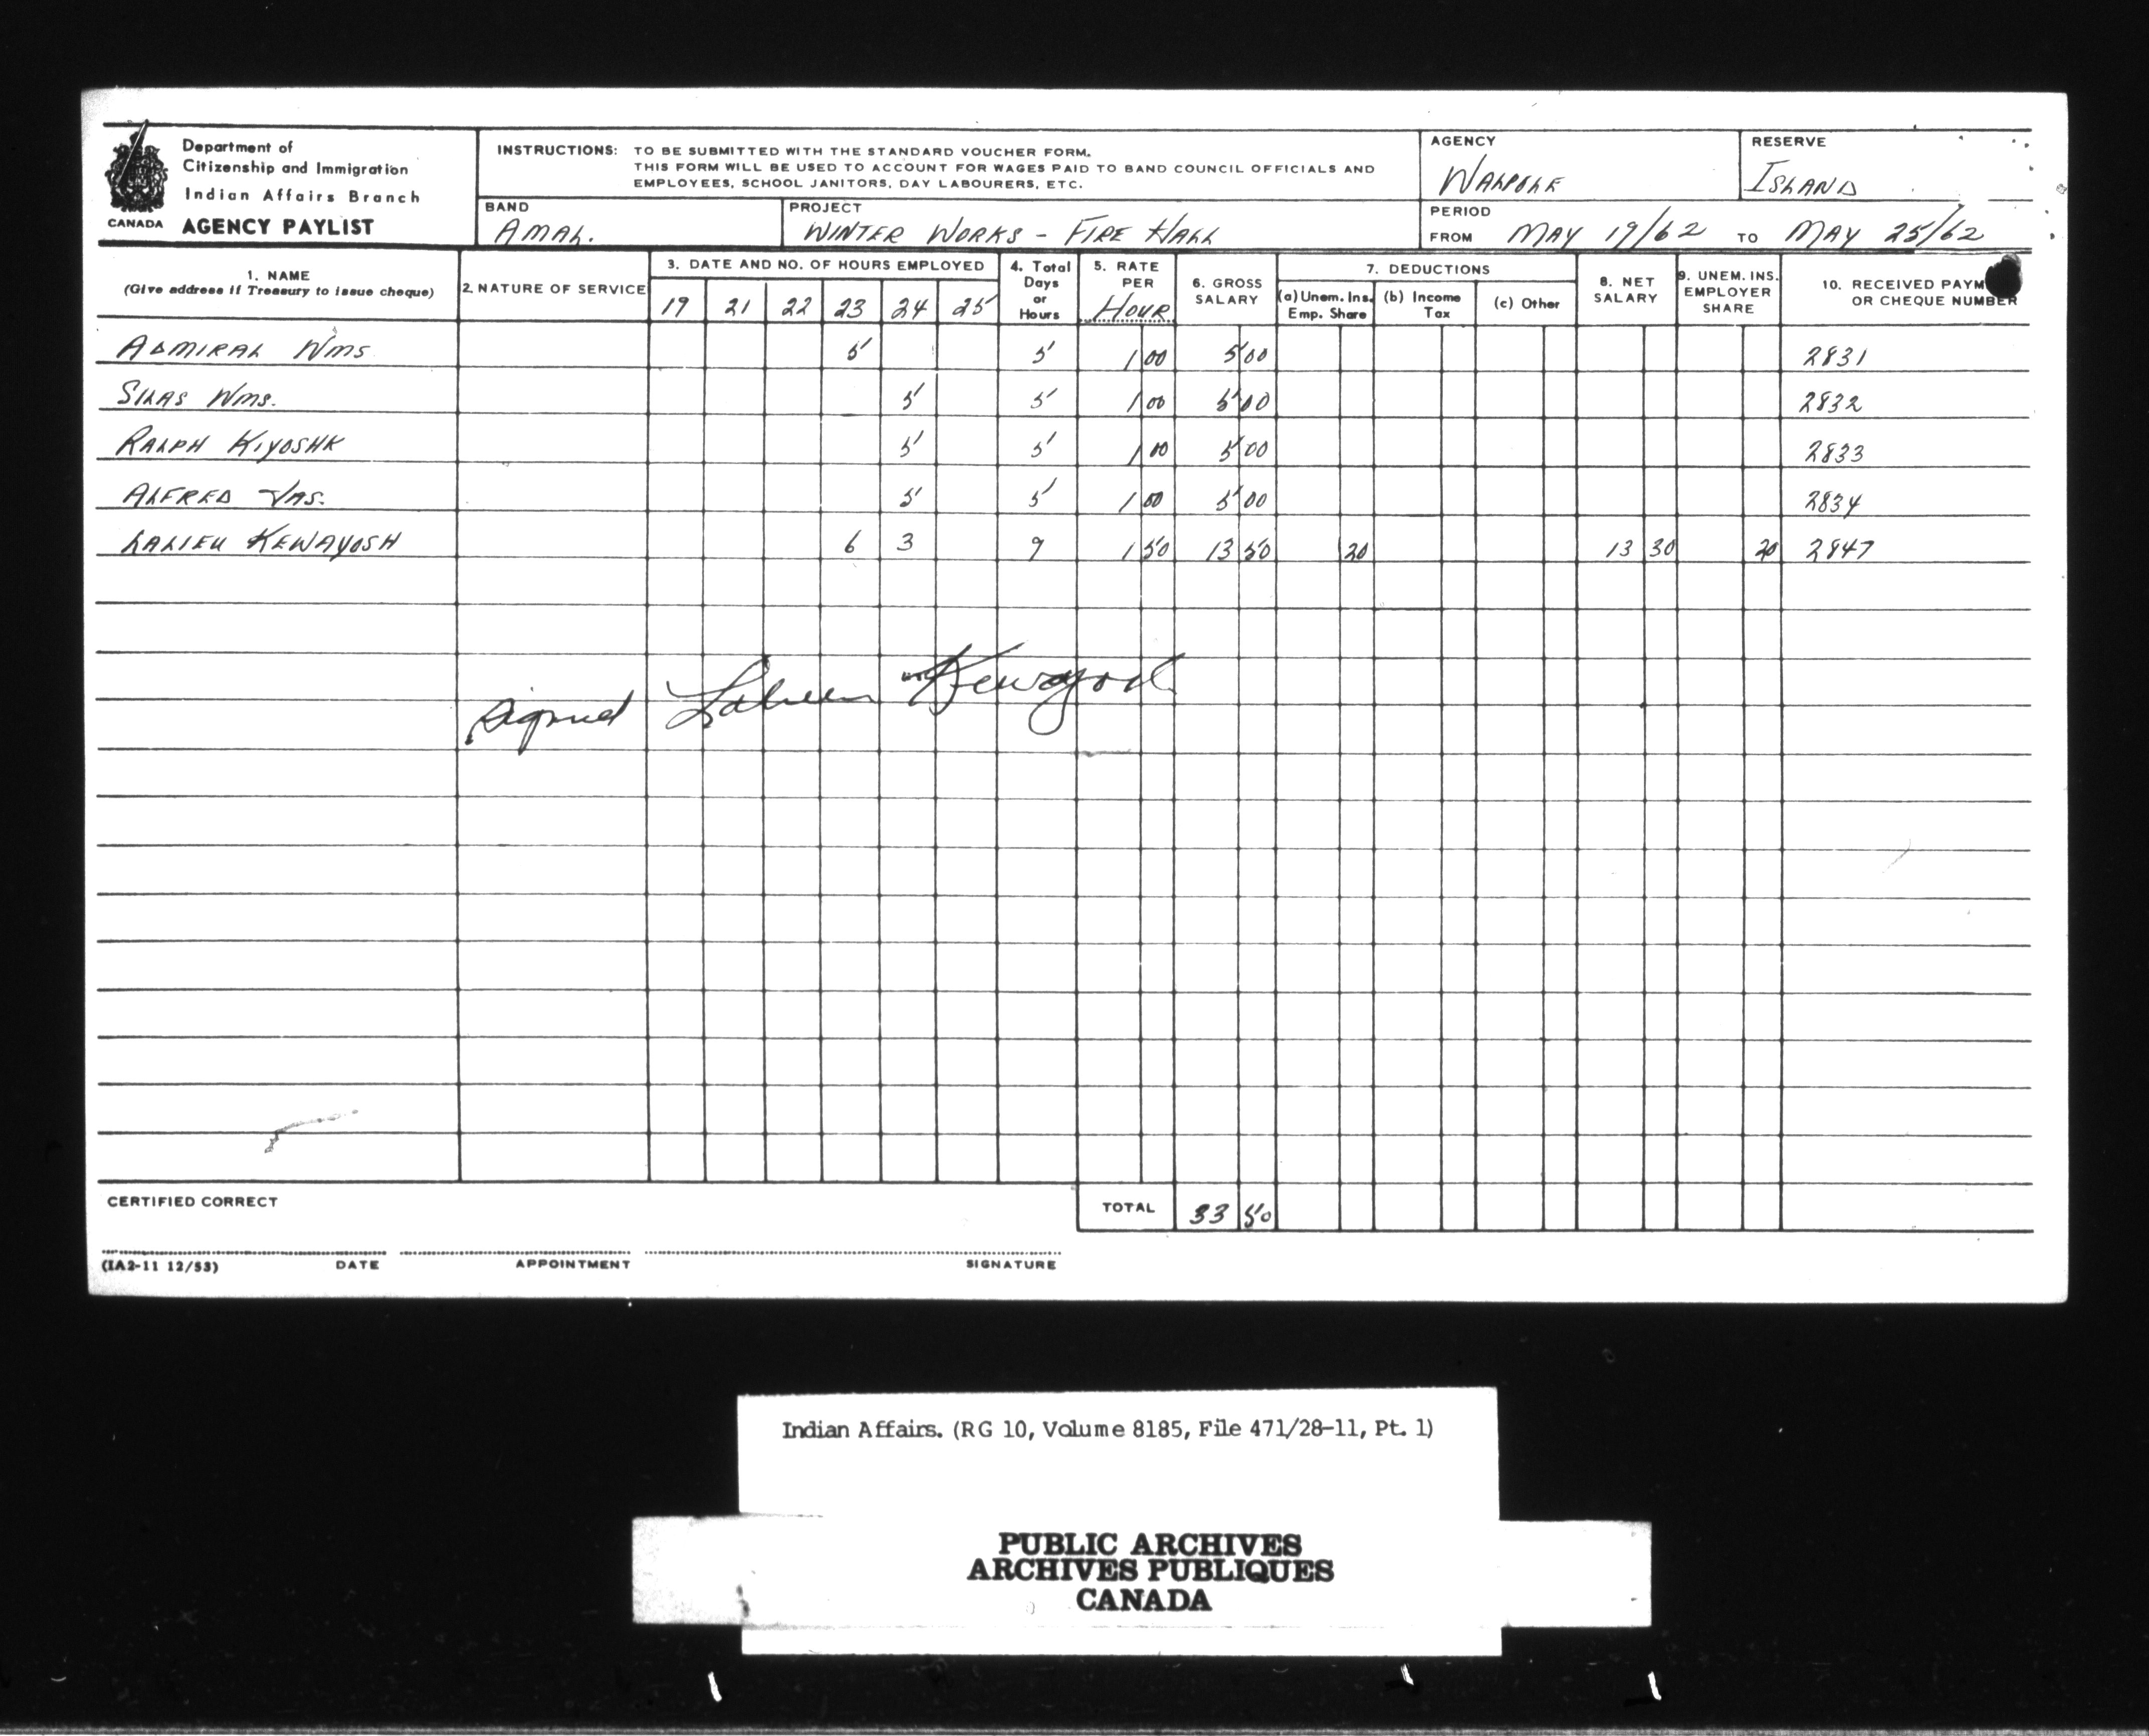 Department of
Citizenship and Immigration
Indian Affairs Branch
CANADA AGENCY PAYLIST
INSTRUCTIONS: TO BE SUBMITTED WITH THE STANDARD VOUCHER FORM.
THIS FORM WILL BE USED TO ACCOUNT FOR WAGES PAID TO BAND COUNCIL OFFICIALS AND
EMPLOYEES, SCHOOL JANITORS, DAY LABOURERS, ETC.
AGENCY
WALPOLE
RESERVE
ISLAND
BAND
AMAL.
PROJECT
WINTER WORKS - FIRE HALL
PERIOD
FROM MAY 19/62 TO MAY 25/62
1. NAME
(Give address if Treasury to issue cheque)
2. NATURE OF SERVICE
3. DATE AND NO. OF HOURS EMPLOYED
19 21 22 23 24 25
4. Total
Days
or
Hours
5. RATE
PER
HOUR
6. GROSS
SALARY
7. DEDUCTIONS
(a) Unem. Ins.
Emp. Share
(b) Income
Tax
(c) Other
8. NET
SALARY
9. UNEM. INS.
EMPLOYER
SHARE
10. RECEIVED PAYM
OR CHEQUE NUMBER
ADMIRAL WMS 5 5 1 00 5 00 2831
SILAS WMS. 5 5 1 00 5 00 2832
RALPH KIYOSHK 5 5 1 00 5 00 2833
ALFRED JAS. 5 5 1 00 5 00 2834
LALIEU KEWAYOSH 6 3 9 1 50 13 50 20 13 30 20 2847
Signed Kewayosh
CERTIFIED CORRECT
TOTAL 33 50
(IA2-11 12/53) DATE APPOINTMENT SIGNATURE
Indian Affairs. (RG 10, Volume 8185, File 471/28-11, Pt. 1)
PUBLIC ARCHIVES
ARCHIVES PUBLIQUES
CANADA